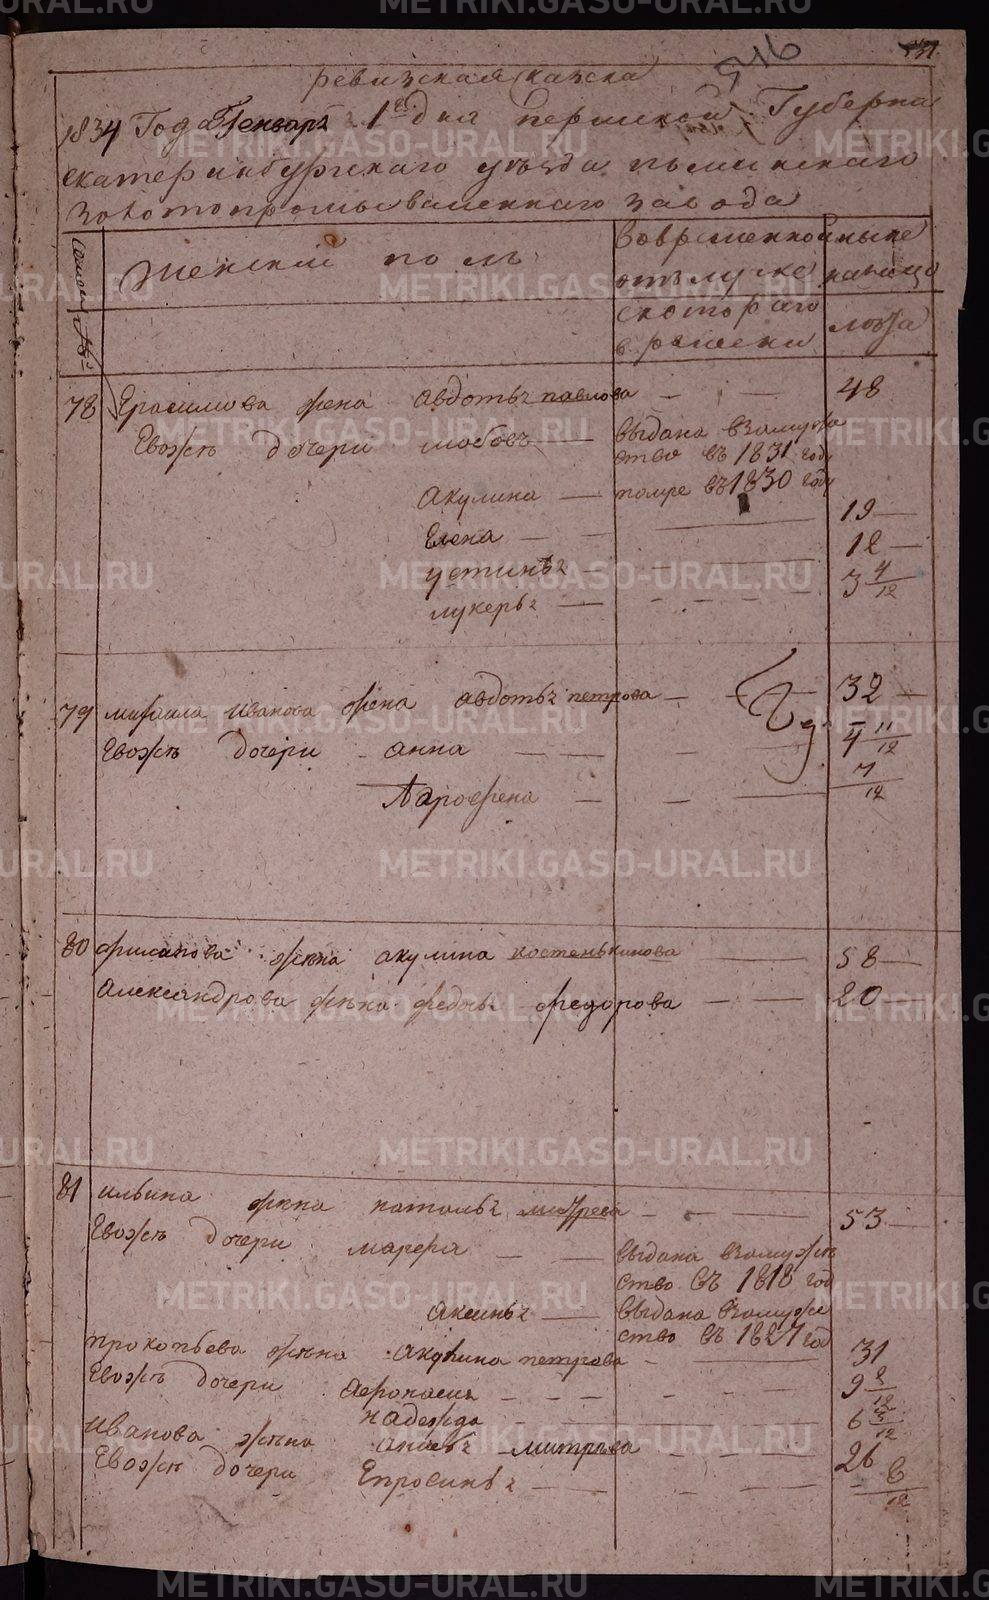 516
531
ревизская сказка
1834 Года Генваря 1го дня пермской Губерни
екатеринбургского уезда пышминского
золотопромываленного завода
Женский пол
вовременной
отълучке
ныне
налицо
скоторого
времени
лета
78 Ерасимова жена авдотья павлова — — 48
Евожъ дочери любовь — выдана взамужа
ство въ 1831 году
акулина — помре въ 1830 году
Елена — — 19 —
устинья — — 12 —
лукерья — — — — 3 4/12
79 михаила иванова жена авдотья петрова — — 32 —
Евожъ дочери анна — — — 4 11/12
Парофена — — — 7/12
80 филатова жъна акулина костеньтинова — — 58 —
Александрова жъна федось федорова — — 20
81 ильина жъна наталья митрева — — — 53 —
Евожъ дочери марфа — — выдана взамужъ
ство въ 1818 год
аксинья — выдана взамуже
ство въ 1827 год
прокопьева жъна акулина петрова — — 31
Евожъ дочери афонасья — — — — — 9 8/12
надежда — — — 6 5/12
иванова жъна анисья митрева — — — 26
Евожъ дочери Епросинья — — — — — 6/12
METRIKI.GASO-URAL.RU